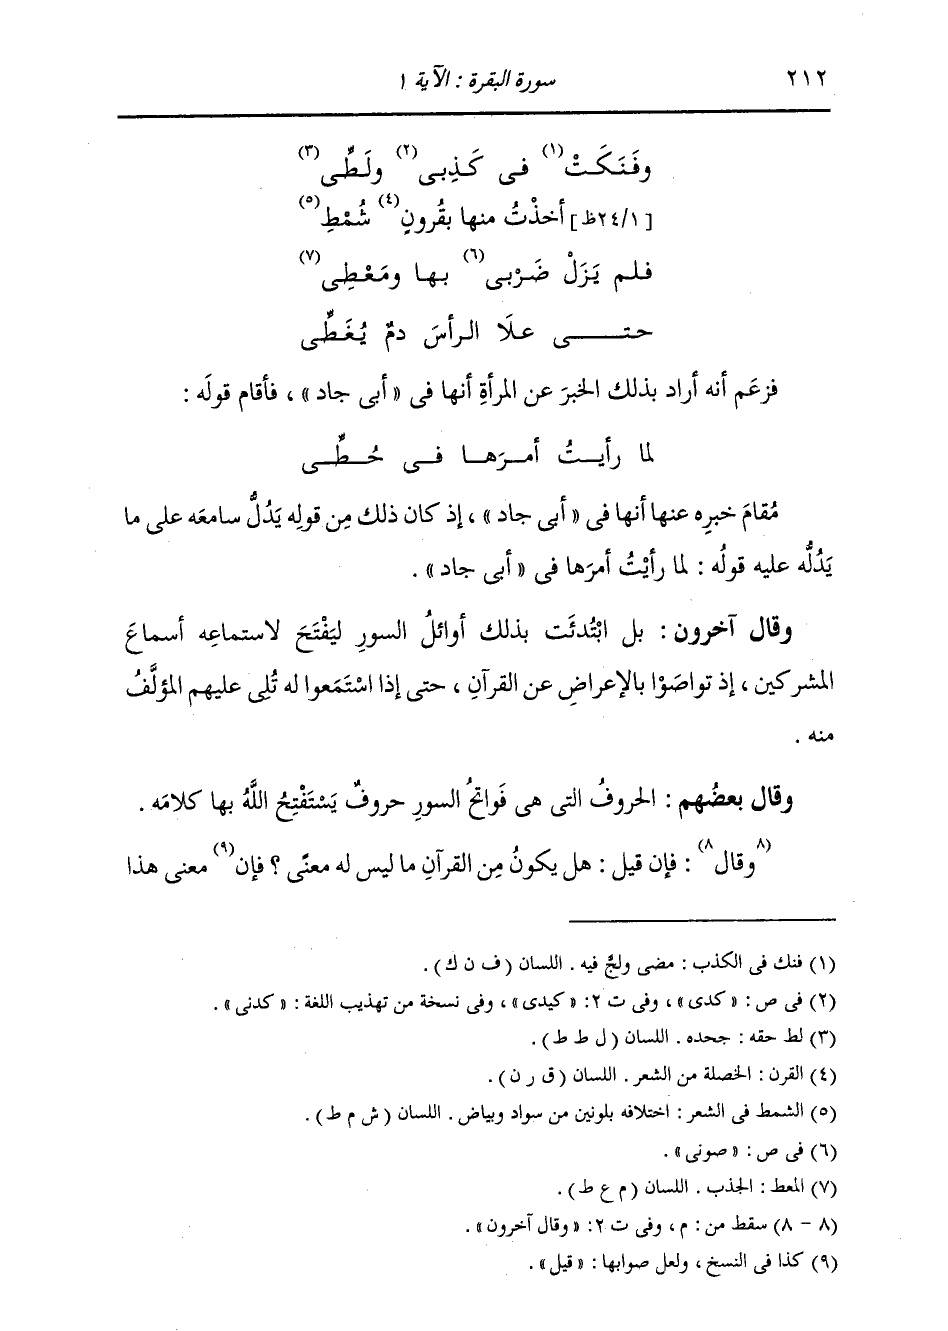 ٢١٢ سورة البقرة : الآية ١
وفَنَكَتْ(١) فى كَذِبى(٢) ولَطِّى(٣)
[٢٤/١ظ] أخذْتُ منها بقُرونٍ(٤) شُمْطِ(٥)
فلم يَزَلْ ضَرْبى(٦) بها ومَعْطِى(٧)
حتـــى علَا الرأسَ دمٌ يُغَطِّى
فزعَم أنه أراد بذلك الخبرَ عن المرأةِ أنها فى « أبى جاد » ، فأقام قولَه :
لما رأيــتُ أمـرَهـا فـى حُـطِّـى
مُقامَ خبرِه عنها أنها فى « أبى جاد » ، إذ كان ذلك مِن قولِه يَدُلُّ سامعَه على ما
يَدُلُّه عليه قولُه : لما رأيْتُ أمرَها فى « أبى جاد » .
وقال آخرون : بل ابْتُدئَت بذلك أوائلُ السورِ ليَفْتَحَ لاستماعِه أسماعَ
المشركين ، إذ تواصَوْا بالإعراضِ عن القرآنِ ، حتى إذا اسْتَمَعوا له تُلِى عليهم المؤلَّفُ
منه .
وقال بعضُهم : الحروفُ التى هى فَواتحُ السورِ حروفٌ يَسْتَفْتِحُ اللَّهُ بها كلامَه .
(٨وقال٨) : فإن قيل : هل يكونُ مِن القرآنِ ما ليس له معنًى ؟ فإن(٩) معنى هذا
(١) فنك فى الكذب : مضى ولجَّ فيه . اللسان ( ف ن ك ) .
(٢) فى ص : « كدى » ، وفى ت ٢: « كيدى » ، وفى نسخة من تهذيب اللغة : « كدنى » .
(٣) لط حقه : جحده . اللسان ( ل ط ط ) .
(٤) القرن : الخصلة من الشعر . اللسان ( ق ر ن ) .
(٥) الشمط فى الشعر : اختلافه بلونين من سواد وبياض . اللسان ( ش م ط ) .
(٦) فى ص : « صونى » .
(٧) المعط : الجذب . اللسان ( م ع ط ) .
(٨ - ٨) سقط من : م ، وفى ت ٢: « وقال آخرون » .
(٩) كذا فى النسخ ، ولعل صوابها : « قيل » .